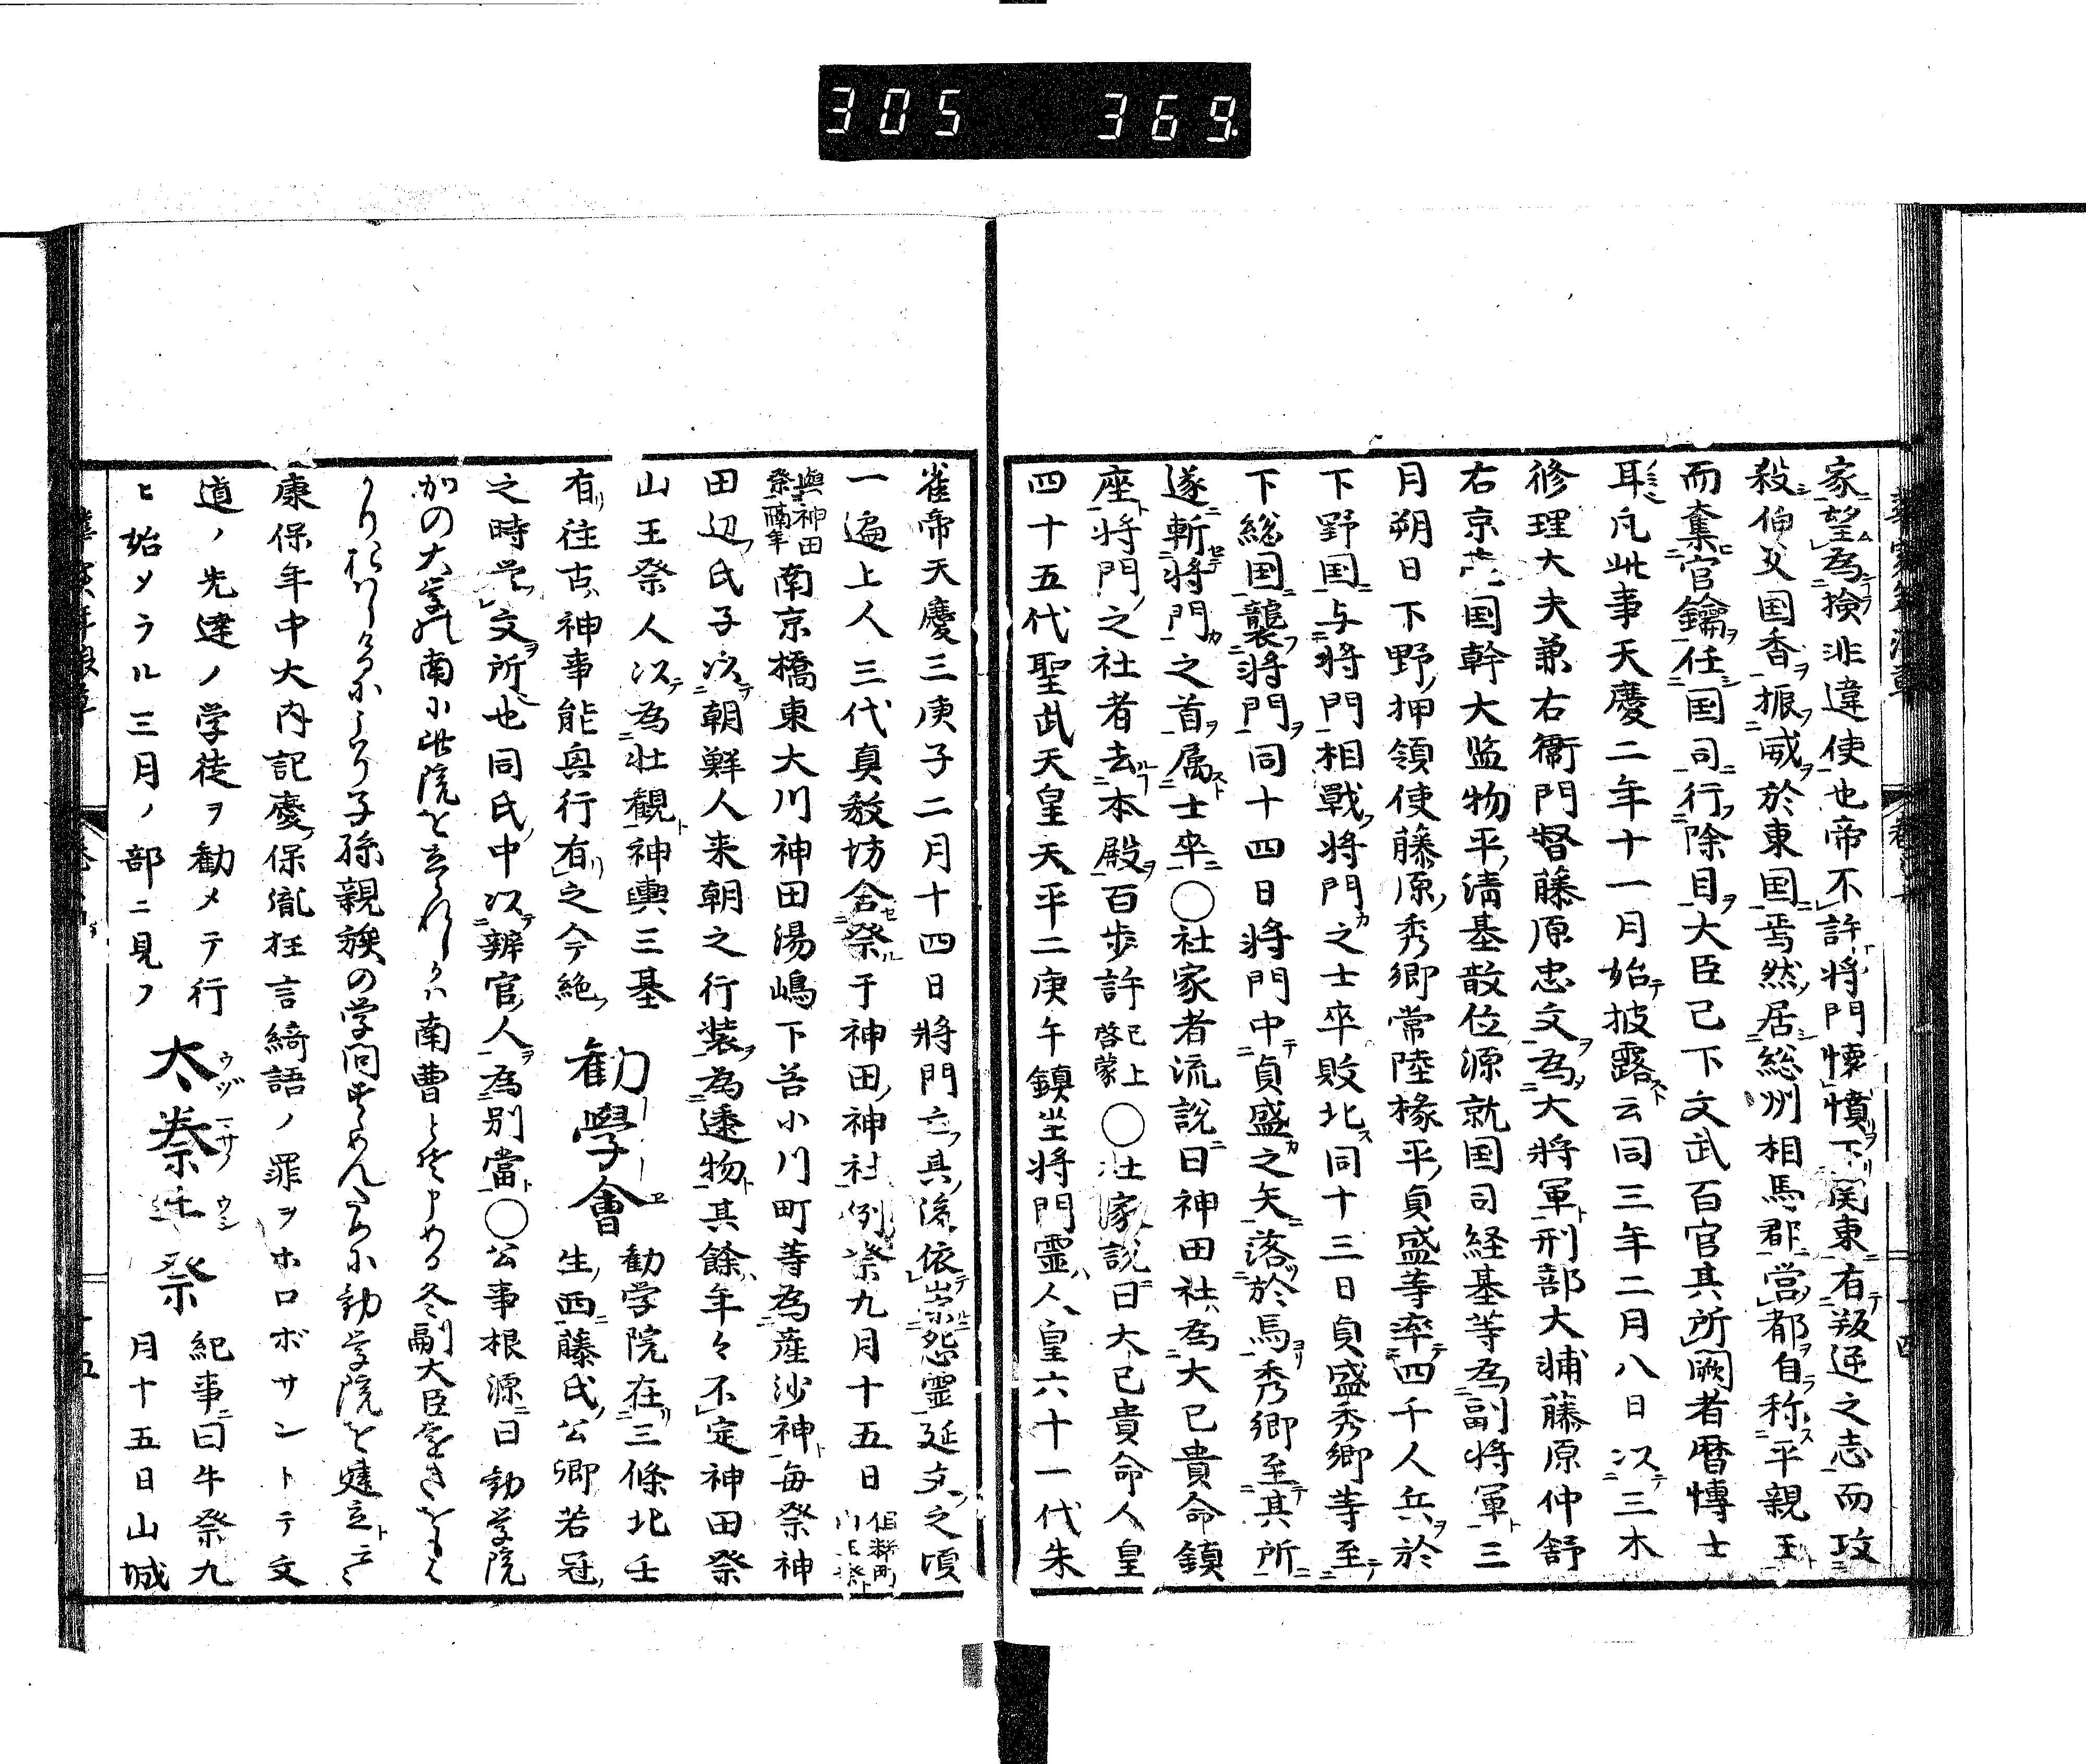 305 369
家望為撿非違使也帝不許将門懐憤下関東有叛逆之志而攻
殺伯父国香振威於東国焉然居総州相馬郡當都自称平親王
而奪官鑰任国司行除目大臣已下文武百官其所厥者暦愽士
耳凡此事天慶二年十一月始披露云同三年二月八日以三木
修理大夫兼右衛門督藤原忠文為大将軍刑部大輔藤原仲舒
右京国幹大监物平清基散位源就国司経基等為副将軍三
月朔日下野押領使藤原秀郷常陸椽平貞盛等率四千人兵於
下野国与将門相戦将門之士卒敗北同十三日貞盛秀郷等至
下総国襲将門同十四日将門中貞盛之矢落於馬秀郷至其所
遂斬将門之首属士卒〇社家者流説曰神田社為大已貴命鎮
座将門之社者去本殿百歩許已上啓蒙〇社家説曰大已貴命人皇
四十五代聖武天皇天平二庚午鎮坐将門霊人皇六十一代朱
雀帝天慶三庚子二月十四日将門亡其後依崇怨霊延文之頃
一遍上人三代真教坊合祭于神田神社例祭九月十五日
與神田祭隔年南京橋東大川神田湯嶋下谷小川町等為産沙神毎祭神
田辺氏子以朝鮮人来朝之行装為逓物其餘年々不定神田祭
山王祭人以為壮観神輿三基
有往古神事能奥行有之今絶
勸學會
勧学院在三條北壬
生西藤氏公卿若冠
之時学文所也同氏中以辨官人為别當〇公事根源曰勧学院
加の大学の南小此院を立られしかハ南曹と申める冬嗣大臣
子孫親族の学問勧学院を建立ト云々
康保年中大内記慶保胤狂言綺語ノ罪ヲホロボサントテ文
道ノ先達ノ学徒ヲ勧メテ行
ヒ始メラル三月ノ部ニ見フ
太秦牛祭
ウヅマサノウシ
紀事曰牛祭九
月十五日山城